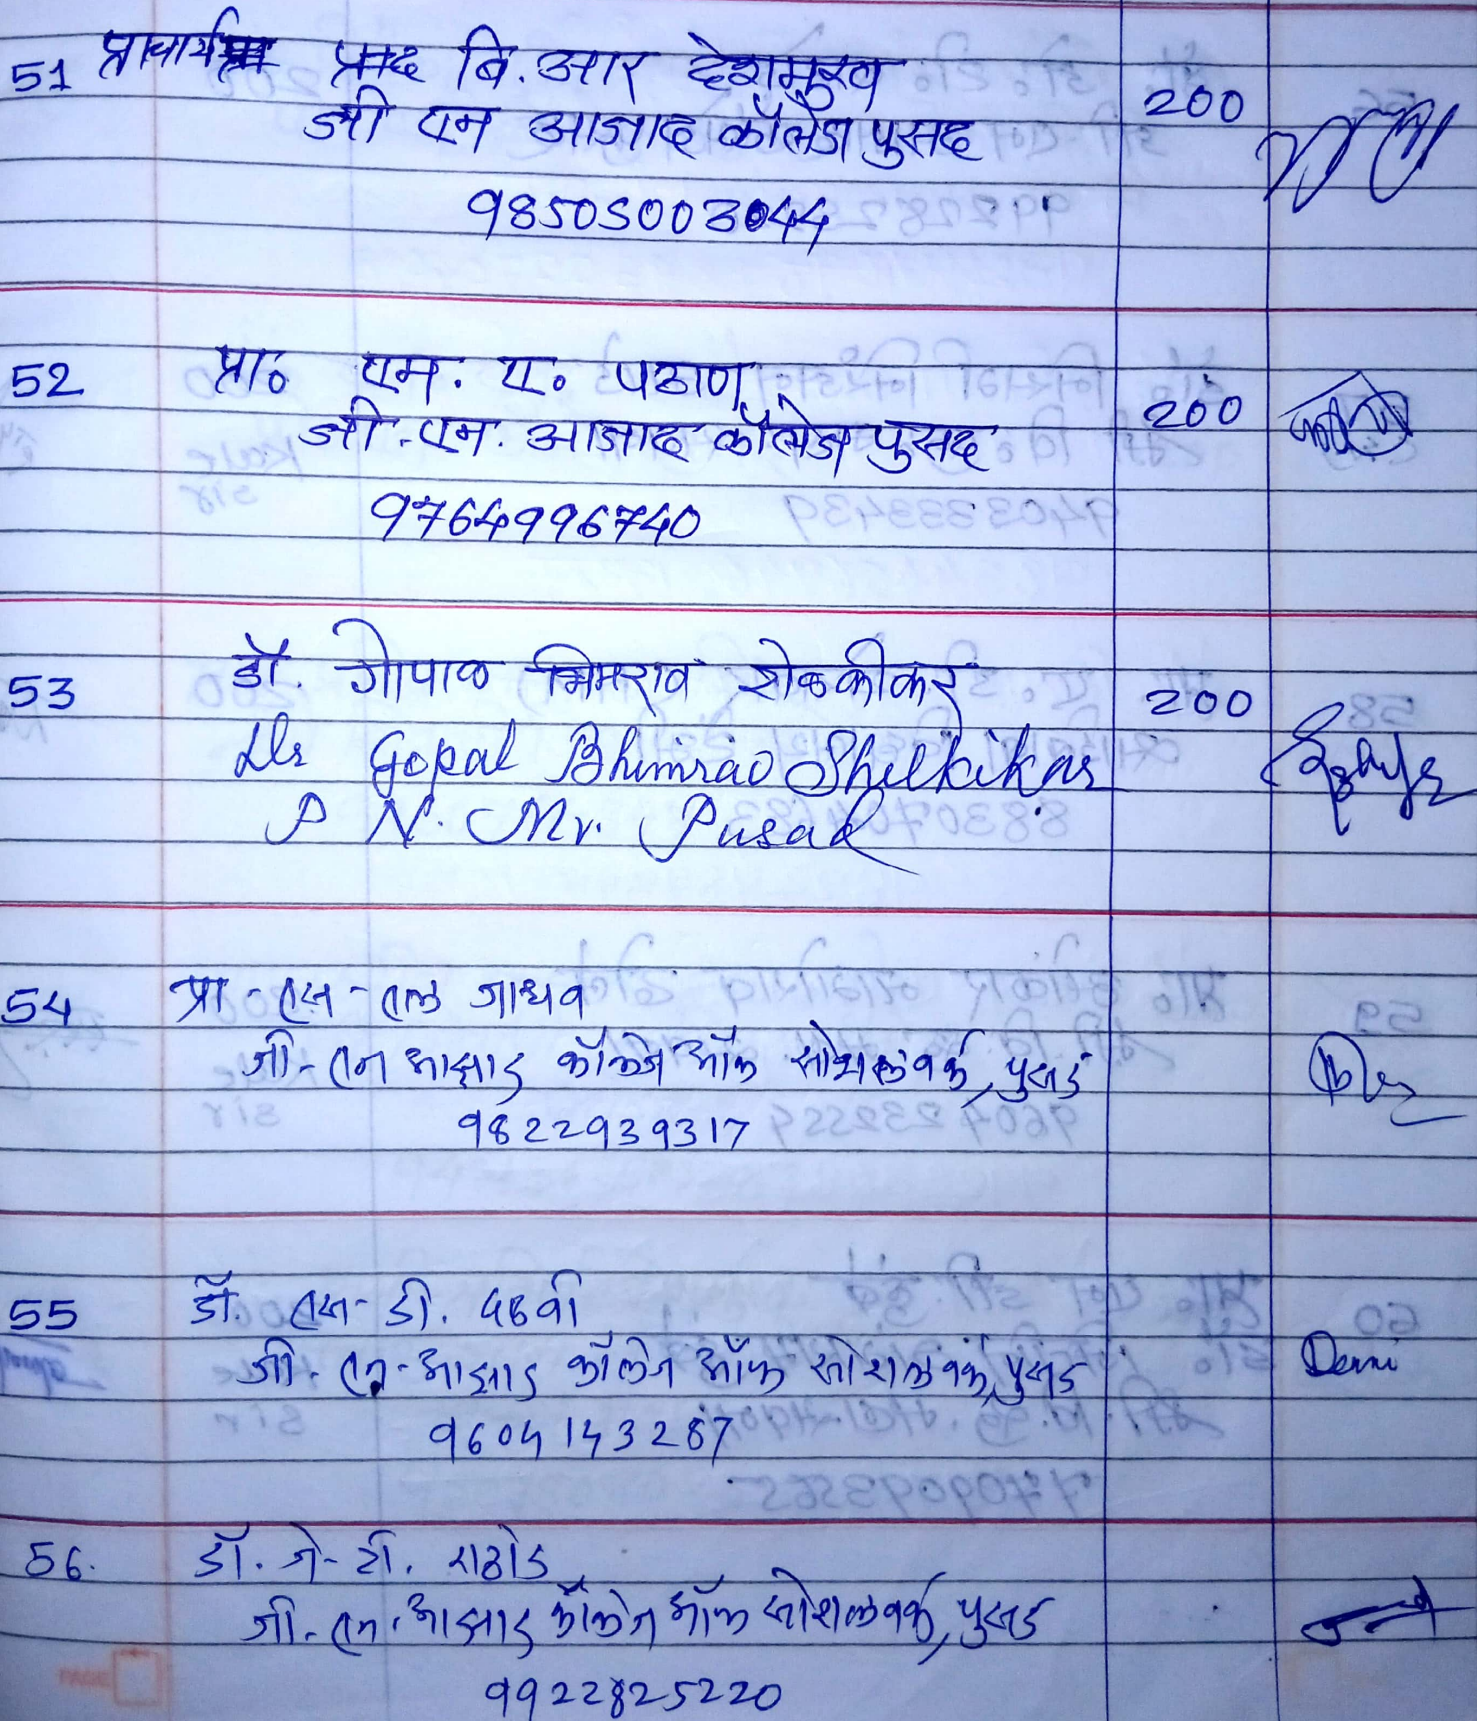 51 प्राचार्य प्रा. बि. आर देशमुख 200
जी एन आजाद कॉलेज पुसद
98505003044
52 प्रा० एम. ए. पठाण 200
जी. एन. आजाद कॉलेज पुसद
9764996740
53 डॉ. गोपाळ भिमराव शेळकीकर 200
Dr Gopal Bhimrao Shelkikar
P N. Mv. Pusad
54 प्रा - एस - एल जाधव
जी - एन आझाड कॉलेज ऑफ सोशलवर्क, पुसद
9822939317
55 डॉ. एस - डी. पडवी
जी - एन - आझाड कॉलेज ऑफ सोशलवर्क, पुसड
9604143287
56. डॉ. जे - टी. राठोड
जी - एन - आझाड कॉलेज ऑफ सोशलवर्क, पुसड
9922825220